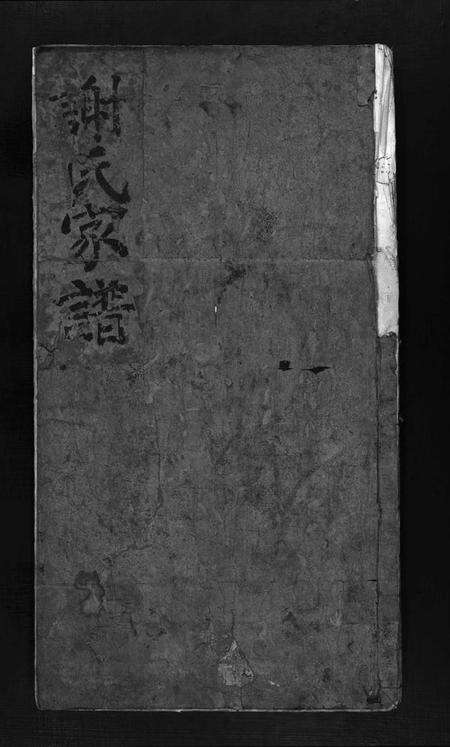 謝氏家譜